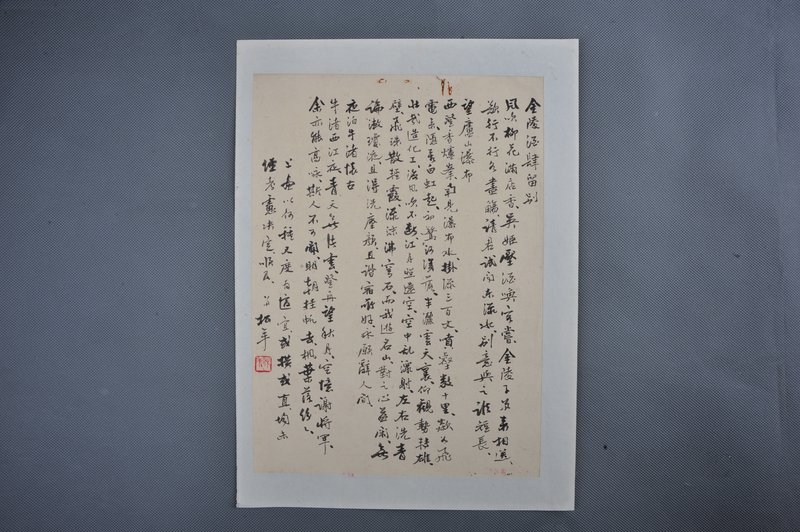 金陵酒肆留别
風吹柳花滿店香、吳姬壓酒喚客嘗、金陵子弟来相送、
欲行不行各盡觴、請君試問東流水、别意與之誰短長、
望廬山瀑布
西登香爐峯、南見瀑布水、掛流三百丈、噴壑數十里、歘如飛
電来、隱若白虹起、初驚河漢落、半灑雲天裏、仰觀勢轉雄、
壯哉造化工、海風吹不斷、江月照還空、空中亂潀射、左右洗青
壁、飛珠散輕霞、流沫沸穹石、而我遊名山、對之心益閑、無
論漱瓊液、且得洗塵顔、且諧宿所好、永願辭人間
夜泊牛渚懷古
牛渚西江夜、青天無片雲、登舟望秋月、空憶謝將軍、
余亦能高詠、斯人不可聞、明朝挂帆去、楓葉落紛〻
上畫以何種尺度為宜、或横或直、均希
煙老憲决定賜及、弟松年